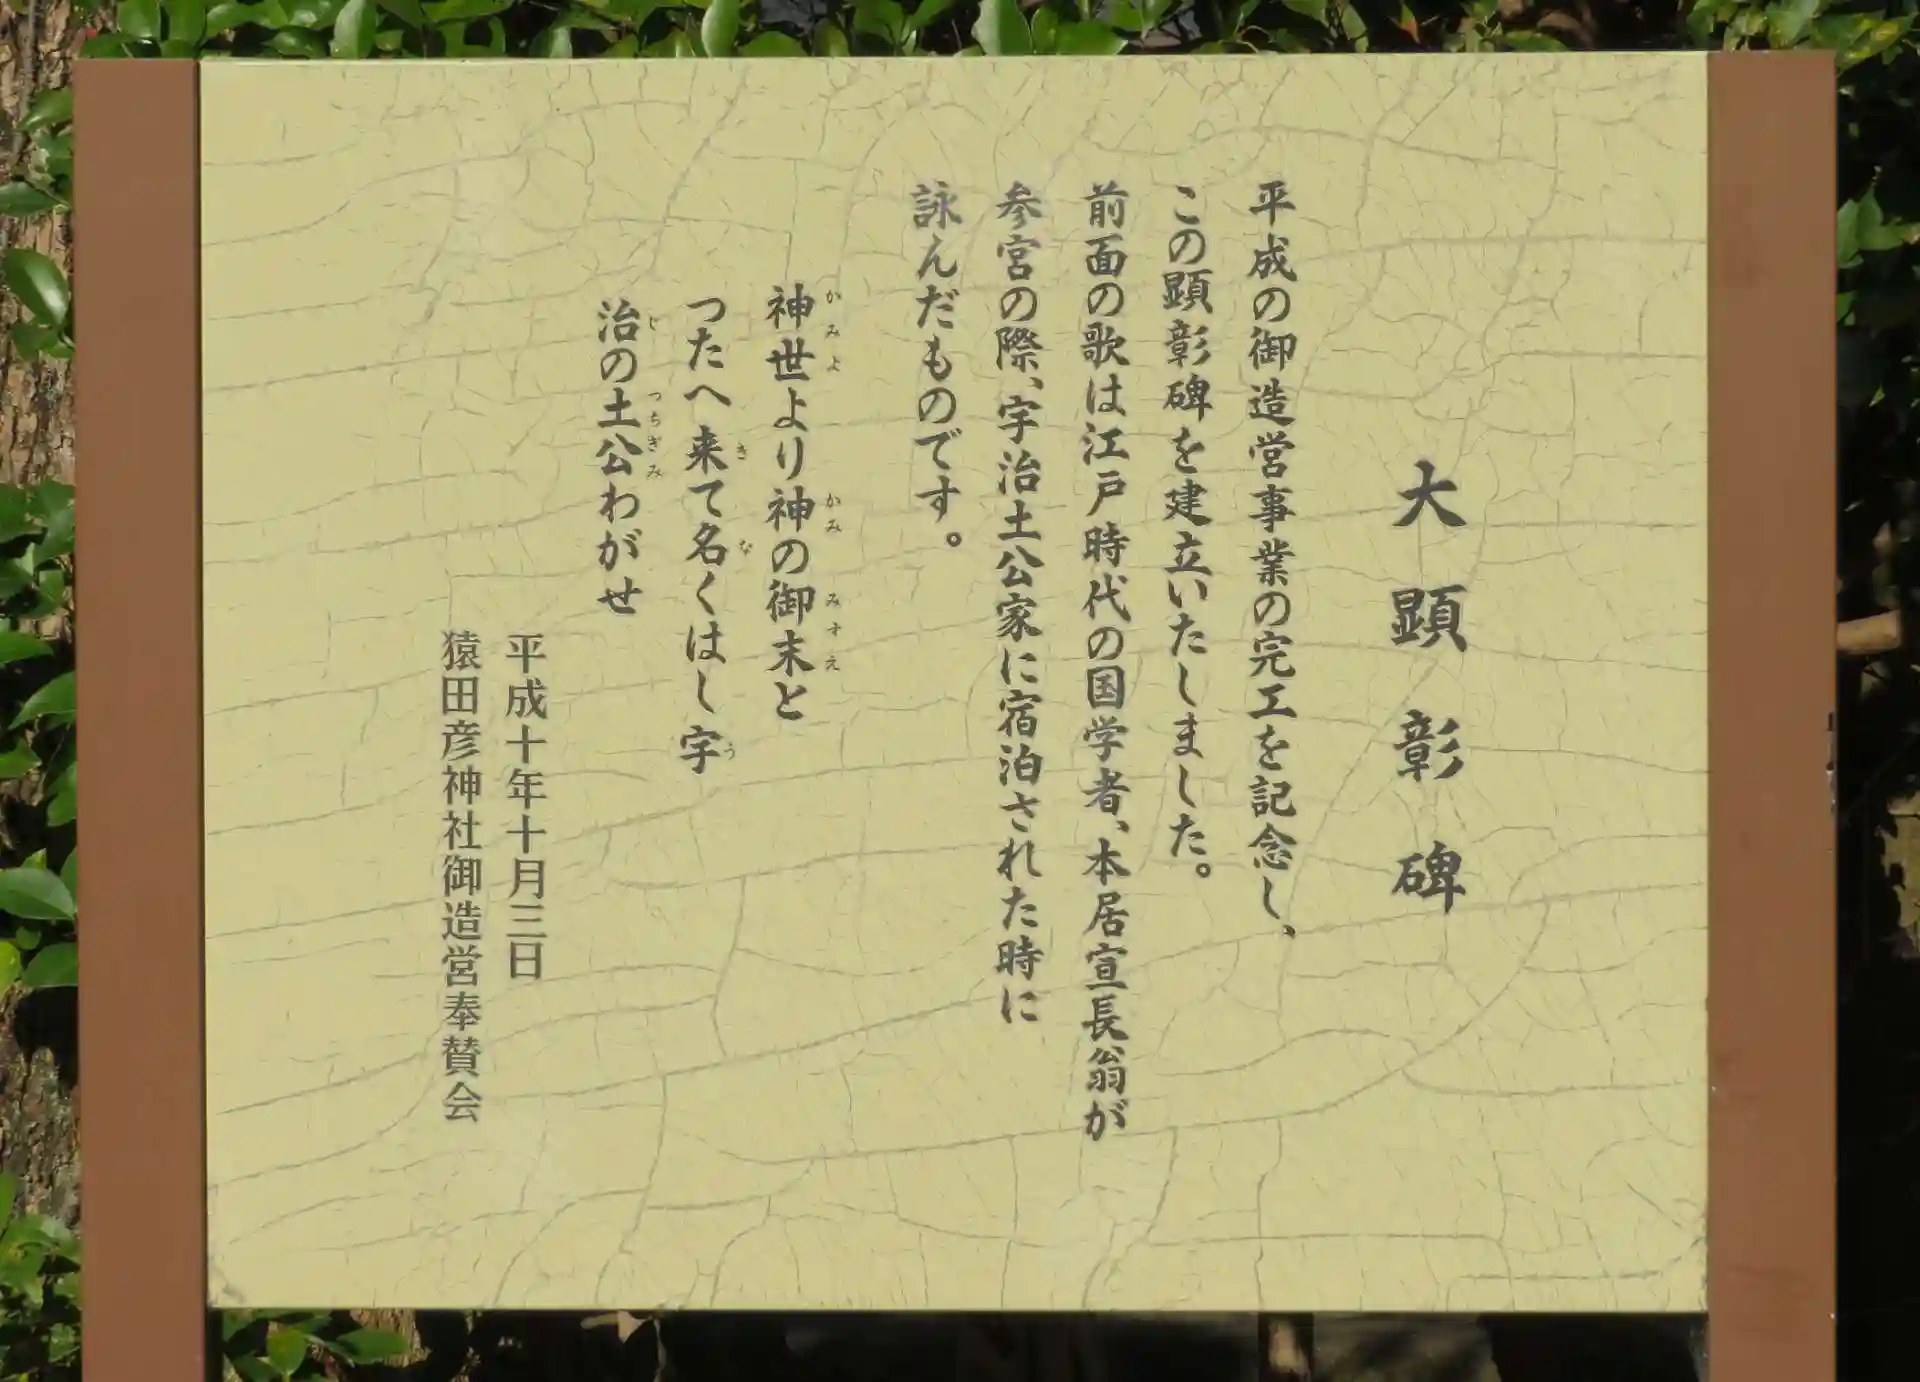 大顕彰碑
平成の御造営事業の完工を記念し、
この顕彰碑を建立いたしました。
前面の歌は江戸時代の国学者、本居宣長翁が
参宮の際、宇治土公家に宿泊された時に
詠んだものです。
神世より神の御末と
かみよ かみ みすえ
つたへ来て名くはし宇
き な う
治の土公わがせ
じ つちぎみ
平成十年十月三日
猿田彦神社御造営奉賛会